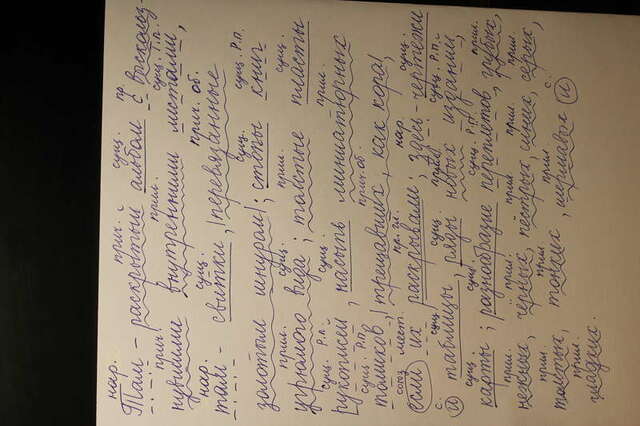 нар. прич. сущ. пр.
Там – раскрытый альбом с выскольз-
прич. прил. сущ. Т.п.
нувшими внутренними листами,
нар. сущ. прич. об.
там – свитки, |перевязанные
сущ. сущ. Р.п.
золотым шнуром|; стопы книг
прил. сущ. прил. сущ.
угрюмого вида; толстые пласты
сущ. Р.п. сущ. прил.
рукописей, насыпь миниатюрных
сущ. Р.П. прич. об.
томиков, |трещавших, как кора|,
союз мест. пр. гл. нар. сущ.
если их раскрывали; здесь – чертежи
с. сущ. сущ. прил. сущ. Р.п.
и таблицы, ряды новых изданий,
сущ. сущ. сущ. Р.п. прил.
карты; разнообразие переплётов, грубых,
прил. прил. прил. прил. прил.
нежных, чёрных, пёстрых, синих, серых,
прил. прил. прил. с.
толстых, тонких, шершавых и
прил.
гладких.